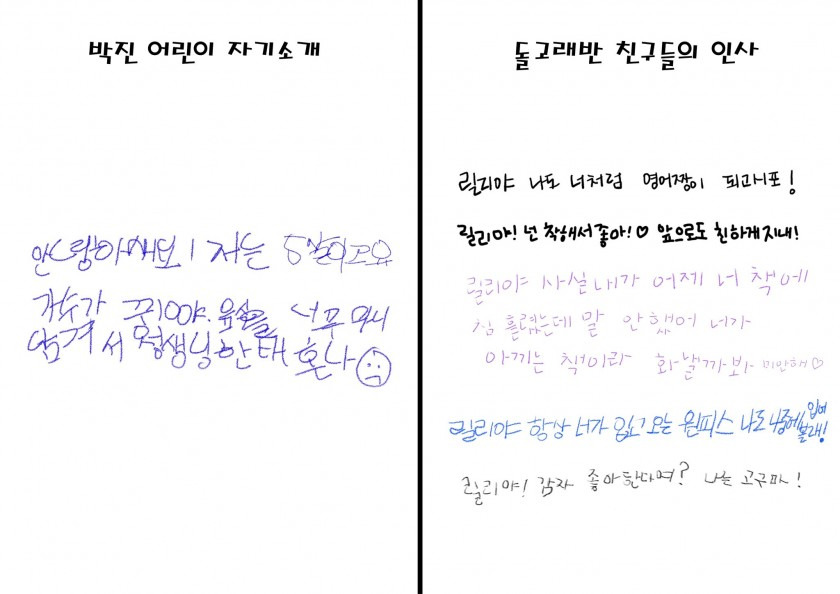 박진 어린이 자기소개
저는 5살이고요
가수가 꿈이야. 너무
서 선생님한태 혼나
돌고래반 친구들의 인사
릴리야 나도 너처럼 영어짱이 되고시포!
릴리야! 넌 착해서 좋아!♡ 앞으로도 친하게 지내!
릴리야 사실 내가 어제 너 책에
침 흘렸는데 말 안 했어 너가
아끼는 책이라 화낼까봐 미안해♡
릴리야 항상 너가 입고 오는 원피스 나도 나중에 입어
볼래!
릴리야! 감자 좋아한다며? 나는 고구마!